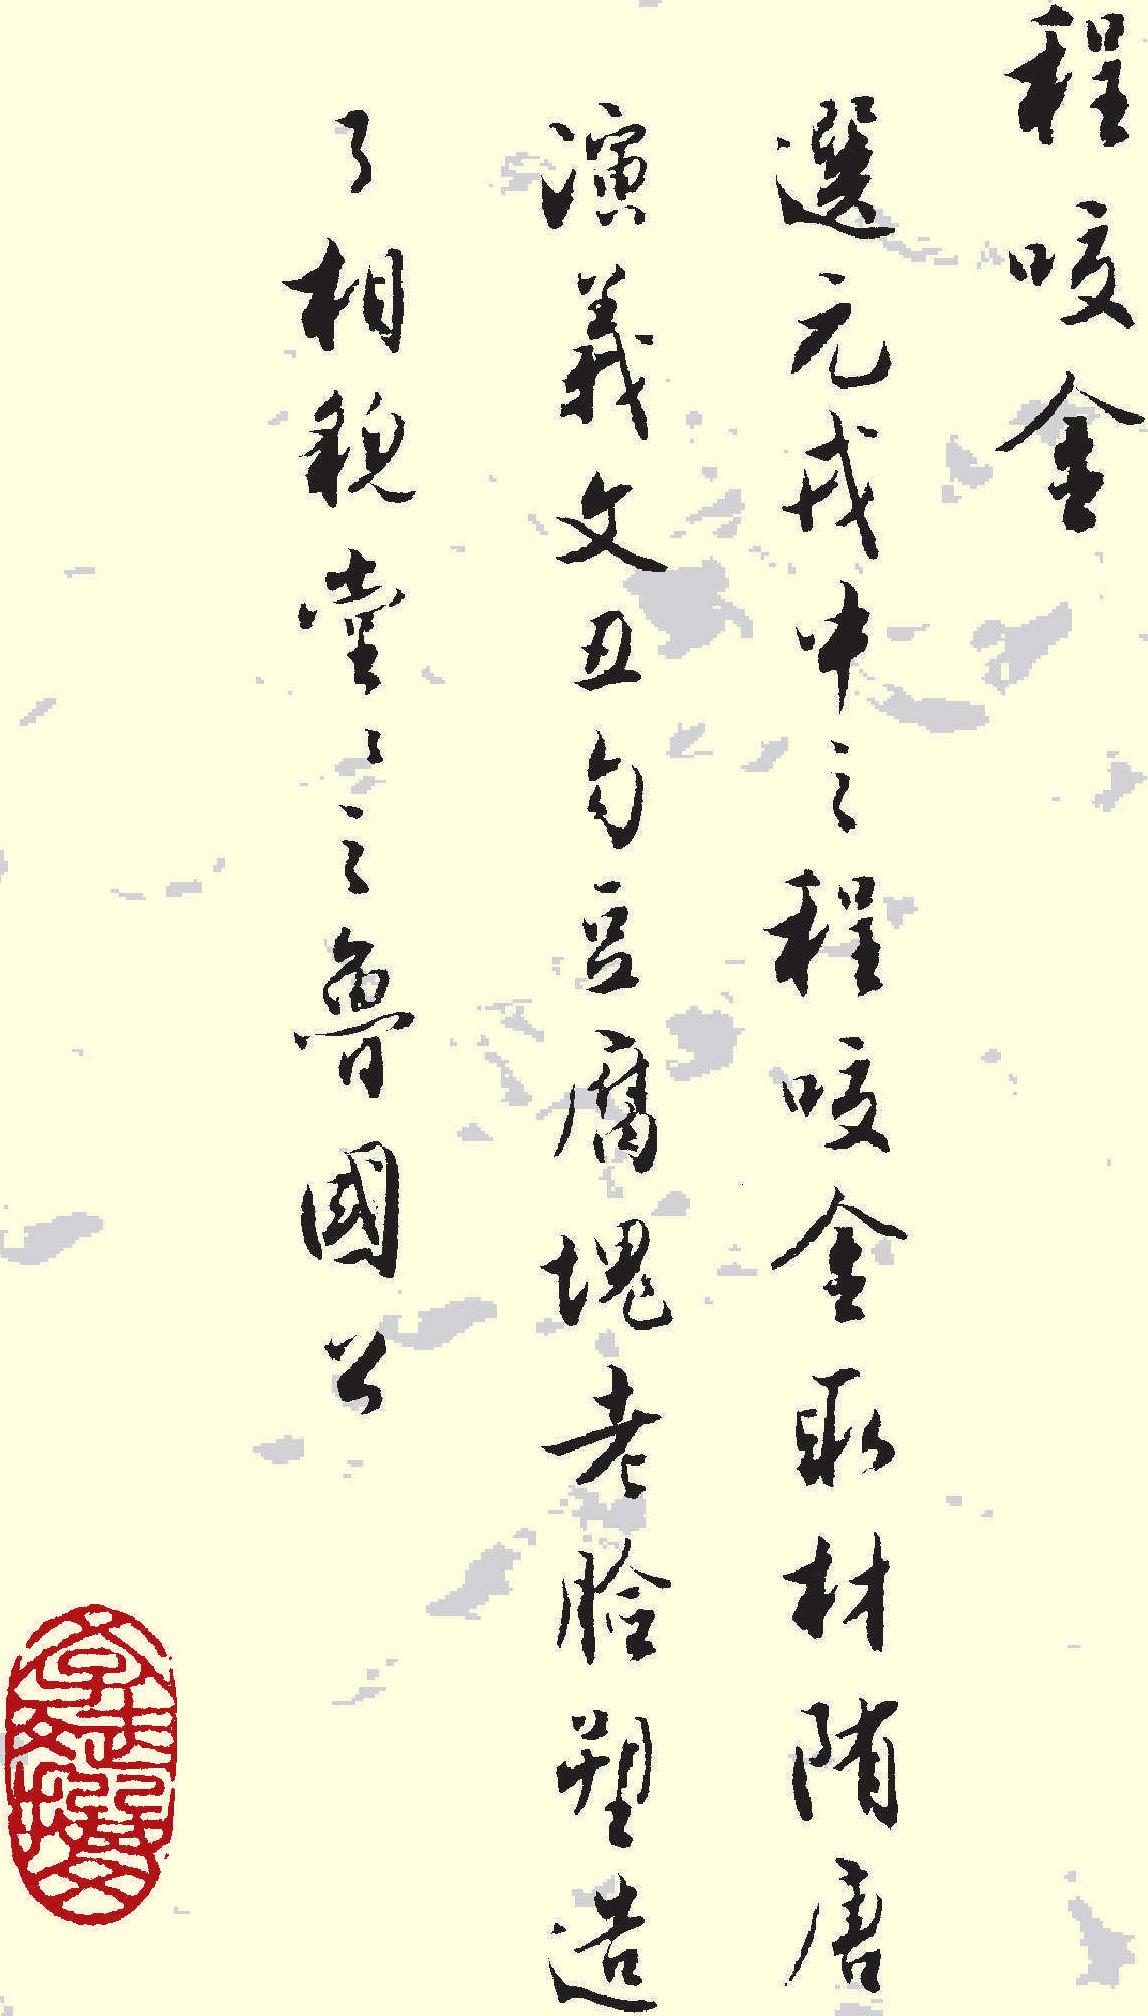 程咬金
選元戎中之程咬金取材隋唐
演義文丑勾豆腐塊老臉塑造
了相貌堂〻之魯國公